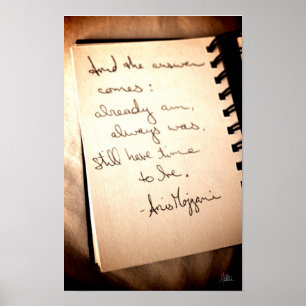 And the answer
comes:
already am,
always was.
Still have time
to be.
-Anis Mojgani